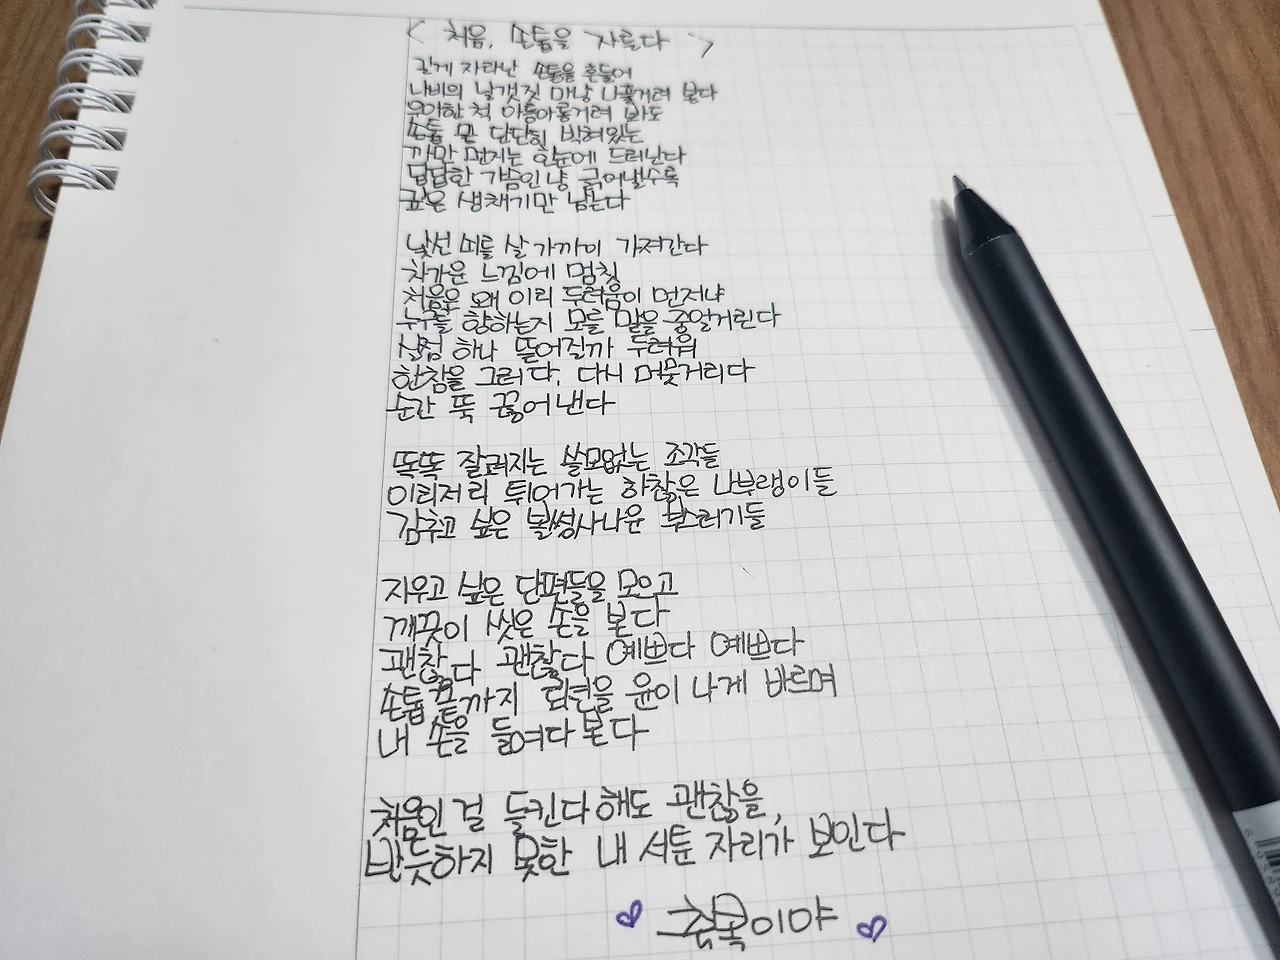 < 처음, 손톱을 자르다 >
길게 자라난 손톱을 흔들어
나비의 날갯짓 마냥 나풀거려 본다
우아한 척 아롱아롱거려 봐도
손톱 끝 단단히 박혀있는
까만 먼지는 한눈에 드러난다
답답한 가슴인냥 긁어낼수록
깊은 생채기만 남는다
낯선 쇠를 살 가까이 가져간다
차가운 느낌에 멈칫
처음은 왜 이리 두려움이 먼저냐
누구를 향하는지 모를 말을 중얼거린다
살점 하나 뜯어질까 두려워
한참을 그러다, 다시 머뭇거리다
순간 뚝 끊어 낸다
똑똑 잘려지는 쓸모없는 조각들
이리저리 튀어가는 하찮은 나부랭이들
감추고 싶은 볼썽사나운 부스러기들
지우고 싶은 단편들을 모으고
깨끗이 씻은 손을 본다
괜찮다 괜찮다 예쁘다 예쁘다
손톱 끝까지 로션을 윤이 나게 바르며
내 손을 들여다 본다
처음인 걸 들킨다 해도 괜찮을,
반듯하지 못한 내 서툰 자리가 보인다